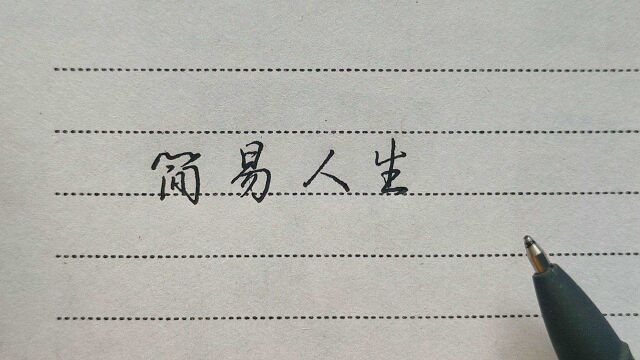 简易人生